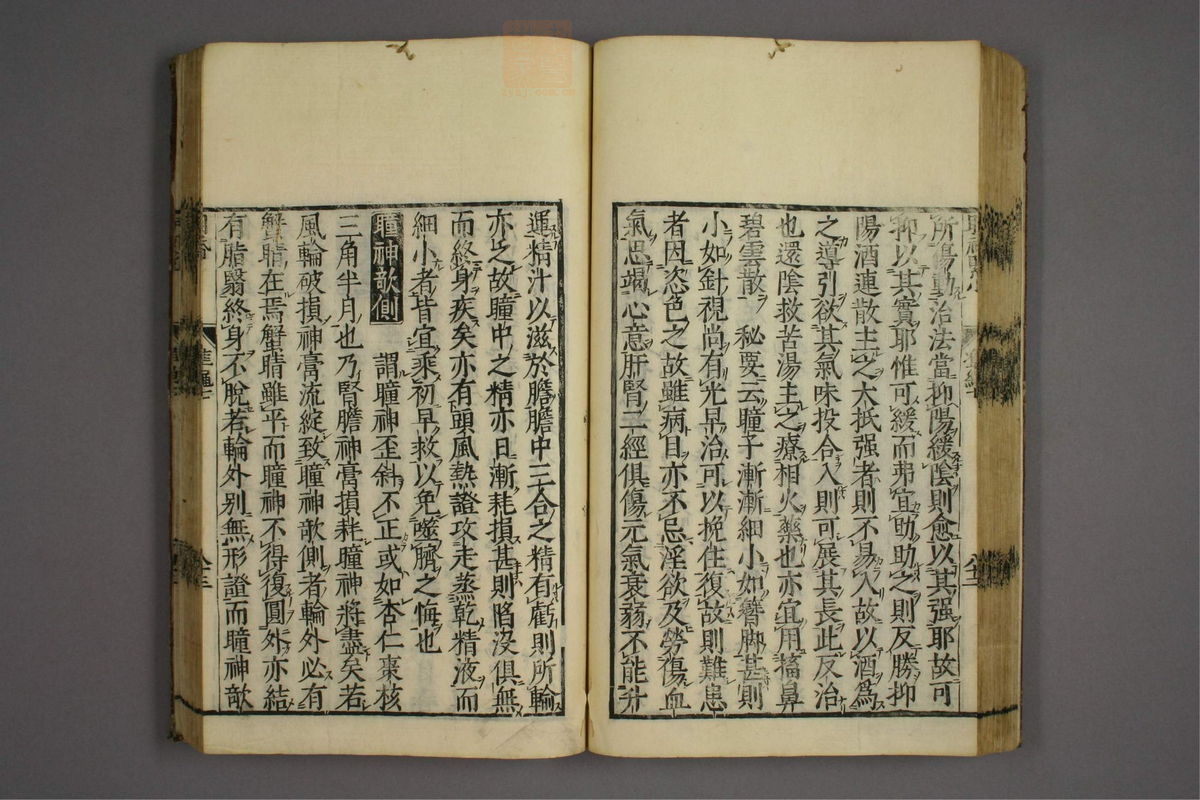 所傷助治法當抑陽緩陰則愈以其强耶故可
抑以其實耶惟可緩而弗宜助助之則反勝抑
陽酒連散主之大抵强者則不易入故以酒爲
之導引欲其氣味投合入則可展其長此反治
也還陰救苦湯主之療相火藥也亦宜用搐鼻
碧雲散　秘要云瞳子漸漸細小如簪脚甚則
小如針視尚有光早治可以挽住復故則難患
者因恣色之故雖病目亦不忌淫欲及勞傷血
氣思竭心意肝腎二經俱傷元氣衰弱不能升
運精汁以滋於膽膽中三合之精有虧則所輸
亦乏故瞳中之精亦日漸耗損甚則陷沒俱無
而終身疾矣亦有頭風熱證攻走蒸乾精液而
細小者皆宜乘初早救以免噬臍之悔也
瞳神欹側　謂瞳神歪斜不正或如杏仁棗核
三角半月也乃腎膽神膏損耗瞳神將盡矣若
風輪破損神膏流綻致瞳神欹側者輪外必有
蟹睛在焉蟹睛雖平而瞳神不得復圓外亦結
有脂翳終身不脫若輪外别無形證而瞳神欹